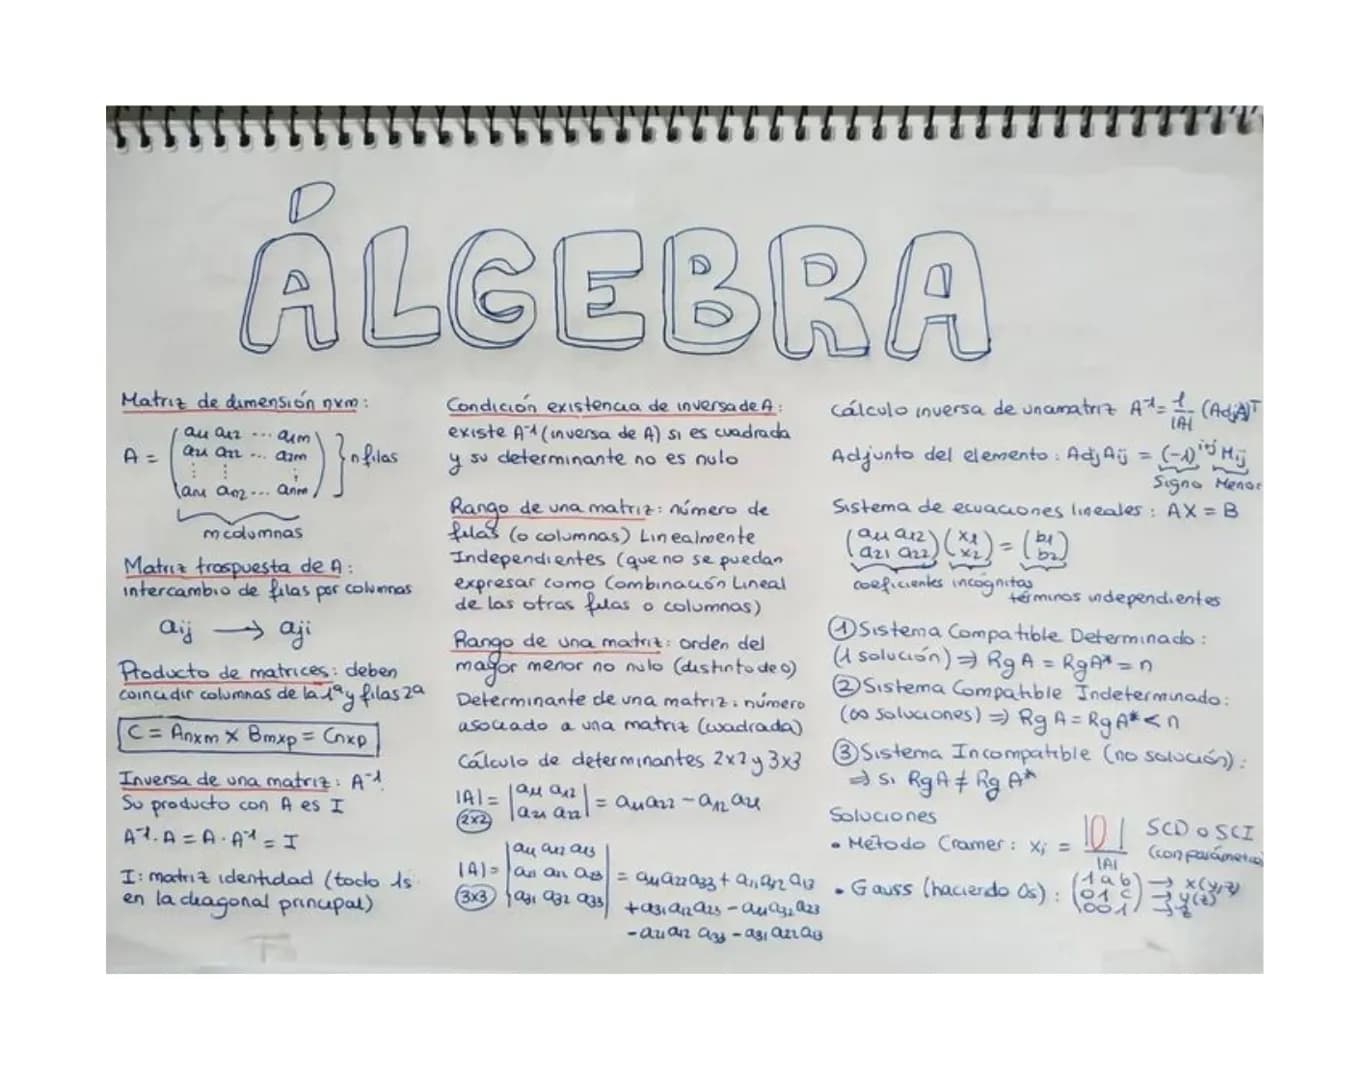 ÁLGEBRA
Matriz de dimensión nxm:
A = (a11 a12 ... a1m
a21 a22 ... a2m
⋮ ⋮ ⋮
an1 an2 ... anm) } n filas
m columnas
Matriz traspuesta de A:
intercambio de filas por columnas
aij → aji
Producto de matrices: deben
coincidir columnas de la 1ª y filas 2ª
C = Anxm x Bmxp = Cnxp
Inversa de una matriz: A⁻¹.
Su producto con A es I
A⁻¹. A = A . A⁻¹ = I
I: matriz identidad (todo 1s
en la diagonal principal)
Condición existencia de inversa de A:
existe A⁻¹ (inversa de A) si es cuadrada
y su determinante no es nulo
Rango de una matriz: número de
filas (o columnas) Linealmente
Independientes (que no se puedan
expresar como Combinación Lineal
de las otras filas o columnas)
Rango de una matriz: orden del
mayor menor no nulo (distinto de 0)
Determinante de una matriz: número
asociado a una matriz (cuadrada)
Cálculo de determinantes 2x2 y 3x3
|A| = |a11 a12
(2x2) a21 a22| = a11 a22 - a12 a21
|A| = |a11 a12 a13
a21 a22 a23
(3x3) a31 a32 a33| = a11 a22 a33 + a21 a32 a13
+ a31 a12 a23 - a11 a32 a23
- a21 a12 a33 - a31 a22 a13
Cálculo inversa de una matriz A⁻¹ = 1/|A| (AdjA)ᵀ
Adjunto del elemento: Adj Aij = (-1)ⁱ⁺ʲ Mij
Signo Menor
Sistema de ecuaciones lineales: AX = B
(a11 a12
a21 a22) (x1
x2) = (b1
b2)
coeficientes incógnitas
términos independientes
① Sistema Compatible Determinado:
(1 solución) ⇒ Rg A = Rg A* = n
② Sistema Compatible Indeterminado:
(∞ soluciones) ⇒ Rg A = Rg A* < n
③ Sistema Incompatible (no solución):
⇒ si Rg A ≠ Rg A*
Soluciones
• Método Cramer: xi = |0|/|A| SCD o SCI
(con parámetro)
• Gauss (haciendo 0s): (1 a b
0 1 c
0 0 1) → x(y,z)
→ y(z)
→ z